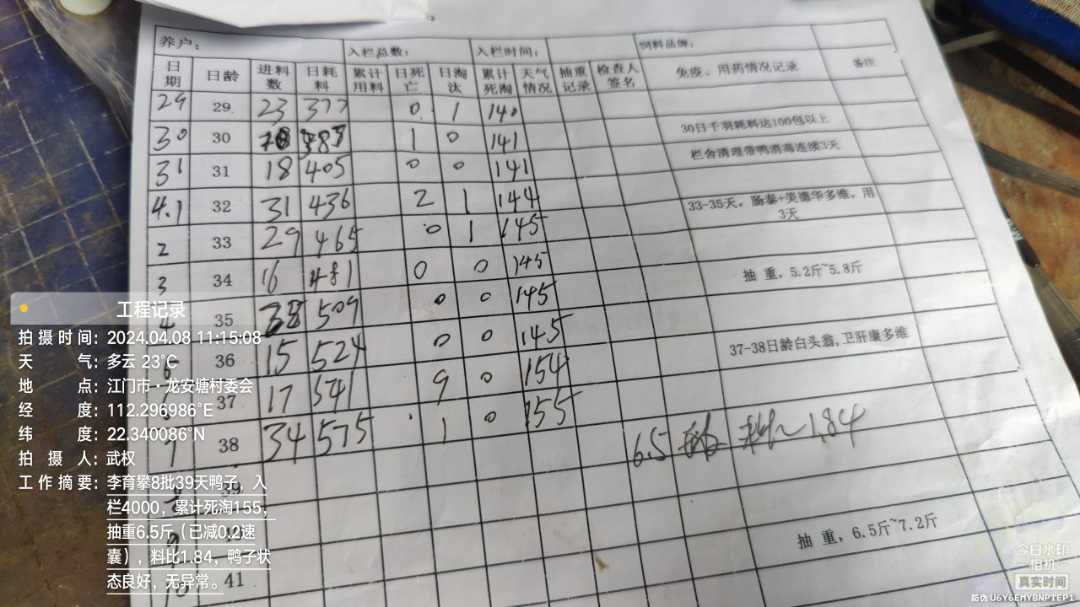 养户: 入栏总数: 入栏时间: 饲料品牌:
日期 日龄 进料数 日耗料 累计用料 日死亡 日淘汰 累计死淘 天气情况 抽重记录 检查人签名 免疫、用药情况记录 备注
29 29 23 377 0 1 140
30 30 0 1 0 141 30日千羽耗料达100包以上
31 31 18 405 0 0 141 栏舍清理带鸭消毒连续3天
4.1 32 31 436 2 1 144 33-35天，肠泰+美德华多维，用3天
2 33 29 465 0 1 145
3 34 16 481 0 0 145 抽重，5.2斤~5.8斤
4 35 28 509 0 0 145
36 15 524 0 0 145 37-38日龄白头翁,卫肝康多维
37 17 541 9 0 154
38 34 575 1 0 155 6.5 料比 1.84
39
抽重，6.5斤~7.2斤
41
工程记录
拍摄时间: 2024.04.08 11:15:08
天气: 多云 23°C
地点: 江门市·龙安塘村委会
经度: 112.296986°E
纬度: 22.340086°N
拍摄人: 武权
工作摘要: 李育攀8批39天鸭子，入
栏4000，累计死淘155，
抽重6.5斤（已减0.2速
囊），料比1.84，鸭子状
态良好，无异常。
今日水印
相机
真实时间
防伪 U6Y6EMYBNPTEP1